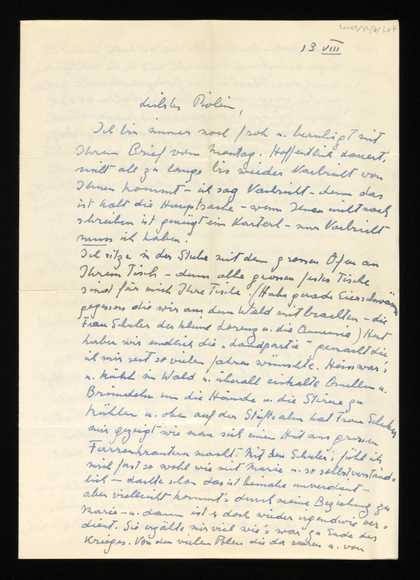 13 VIII
Liebster Violin,
Ich bin immer noch froh u. beruhigt mit
Ihrem Brief vom Montag. Hoffentlich dauert's
nicht all zu lange bis wieder Nachricht von
Ihnen kommt – ich sag Nachricht – denn das
ist halt die Hauptsache – wenn Ihnen nicht nach
schreiben ist genügt ein Karterl – nur Nachricht
muss ich haben!
Ich sitze in der Stube mit dem grossen Ofen an
Ihrem Tisch – denn alle grossen festen Tische
sind für mich Ihre Tische! (Habe gerade Eierschwämme
gegessen die wir aus dem Wald mitbrachten – die
Frau Schuler der kleine Lorenz u. die Annemie) Heut
haben wir endlich die "Landpartie" gemacht die
ich mir seit so vielen Jahren wünschte. Heiss war's
u. kühl im Wald u. überall eiskalte Quellen u.
Brünndeln um die Hände u. die Stirne zu
kühlen u. oben auf der Stiftsalm hat Frau Schuler
mir gezeigt wie man sich einen Hut aus grossen
Farrenkräutern macht. Mit den Schuler's fühl ich
mich fast so wohl wie mit Marie u. so selbstverständ-
lich – dachte schon das ist beinahe unverdient –
aber vielleicht kommt's durch meine Beziehung zu
Marie – u. dann ist es doch wieder irgendwie ver-
dient. Sie erzählte mir viel wie's war zu Ende des
Krieges. Von den vielen Polen die da waren u. von